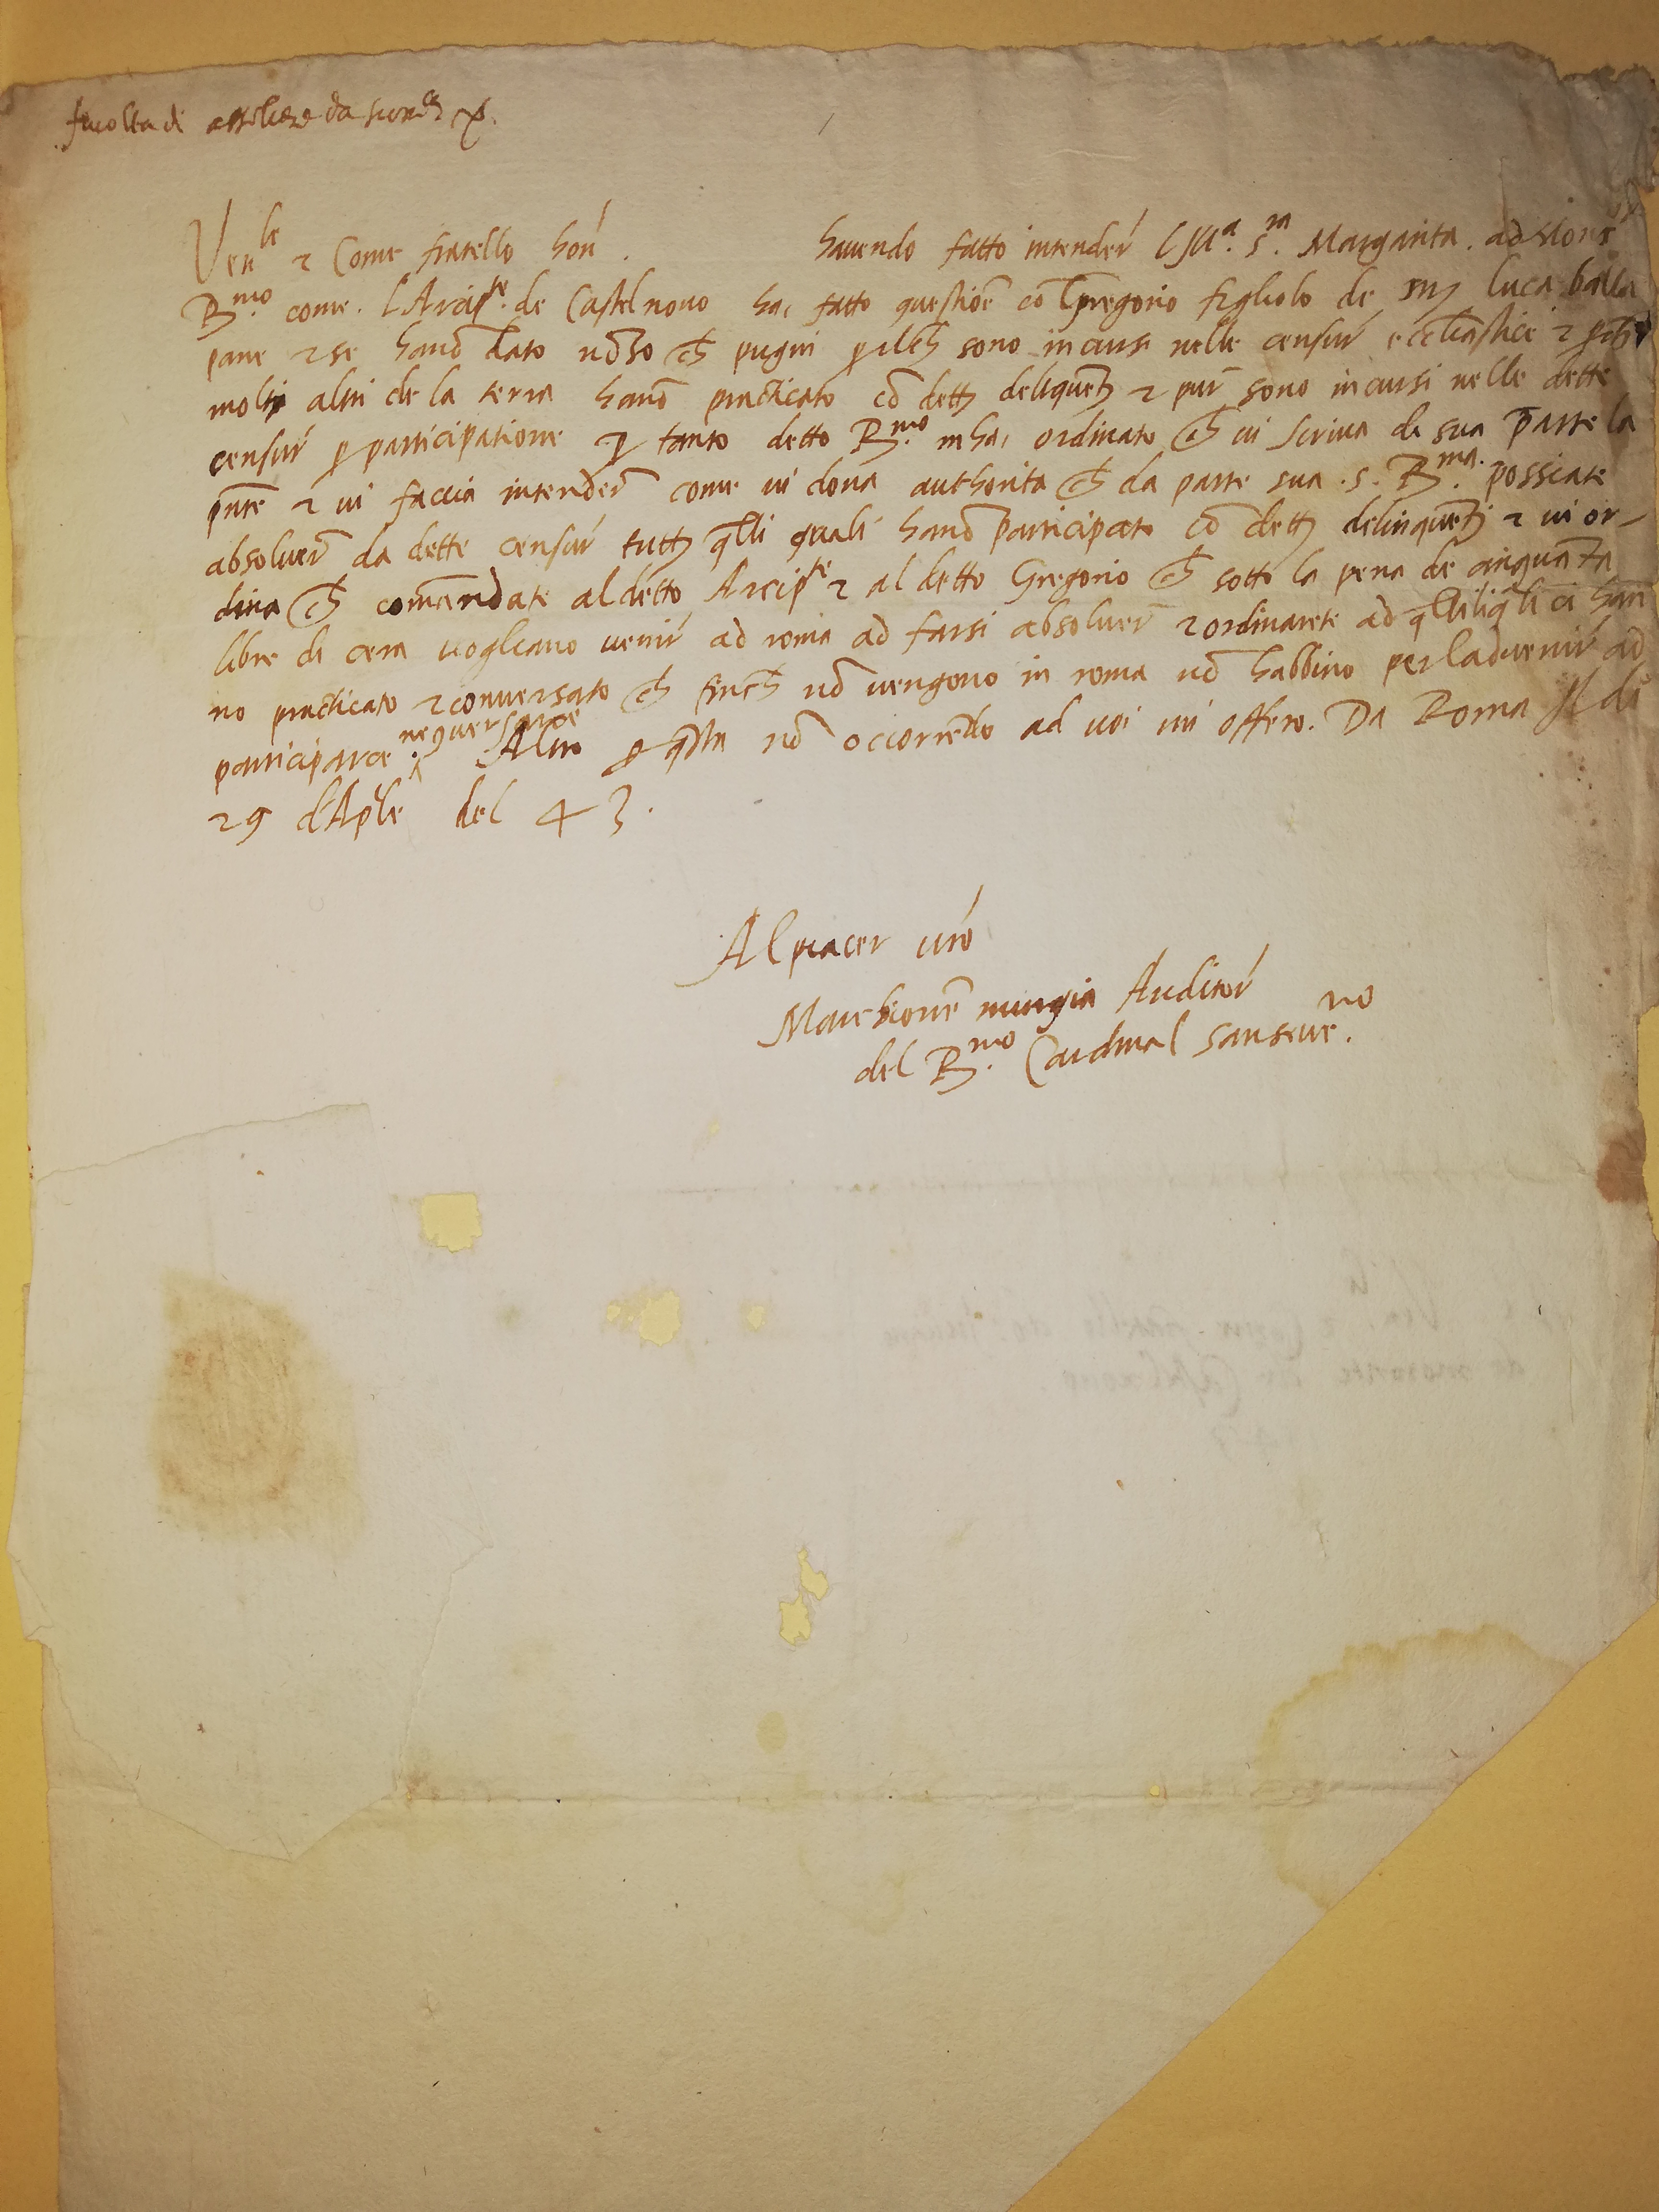 facolta di
Ven.le et Come fratello hon. havendo fatto intender l Ill.a S.ra Margarita. ad Mons.r
R.mo come. l Arcip.te de Castelnovo ha, fatto questiōe cō gregorio figliolo de luca balla
pane et se hanō dato ch pugni sono incursi nelle censur ecclīastice et
molti altri de la terra hanō practicato cō dett deliquent et pur sono incursi nelle dette
censur p participatione p tanto detto R.mo mha, ordinato ch vi scriva da sua parte la
pnte et vi faccia intender come vi dona authorita ch da parte sua. s. R.ma possiate
absolver da dette censur tutt qlli quali hanō participato cō dett delinquent et vi or-
dina ch comēndate al detto Arcip.te et al detto Gregorio ch sotto la pena de cinquāta
libre di cera vogliano venir ad roma ad farsi absolver et ordinarete ad qlli qli ci han
no practicato et conversato ch finch nō vengono in roma nō habbino per ladvenir ad
participarce ne qversarce Altro p qsta nō occorrēdo ad voi mi offero. Da Roma Il di
29 d'Aple del 43.
Al piacer vro
Marchionne mungia Auditor
del R.mo Cardinal sanseve.no
Ven.le et Come fratello
in Castelnovo